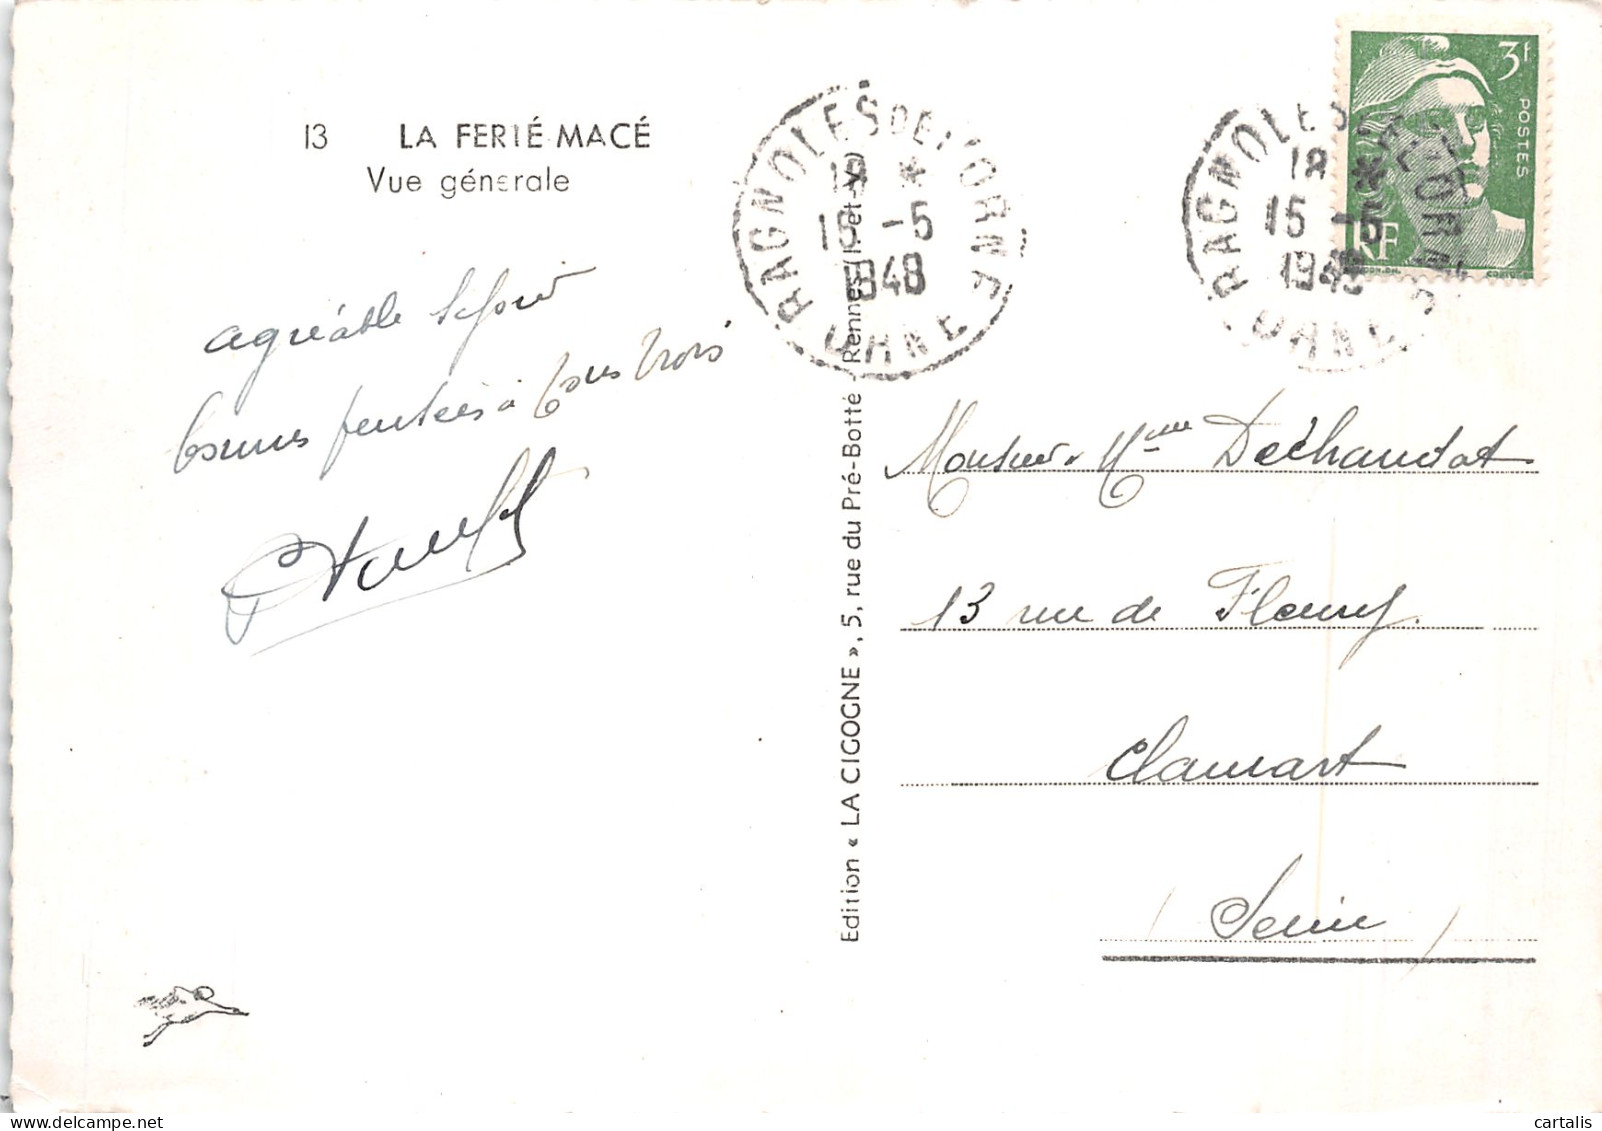 13 LA FERTÉ-MACÉ
Vue générale
agréable séjour
bonnes pensées à tous trois
BAGNOLES DE L'ORNE
18 *
15 -5
1948
ORNE
BAGNOLES DE L'ORNE
18 *
15 -5
1948
ORNE
3f
POSTES
RF
Edition « LA CIGOGNE », 5, rue du Pré-Botté - Rennes (I.-et-V.)
Monsieur & Mme Dechandat
13 rue de Fleury.
Clamart
(Seine)
cartalis
delcampe.net